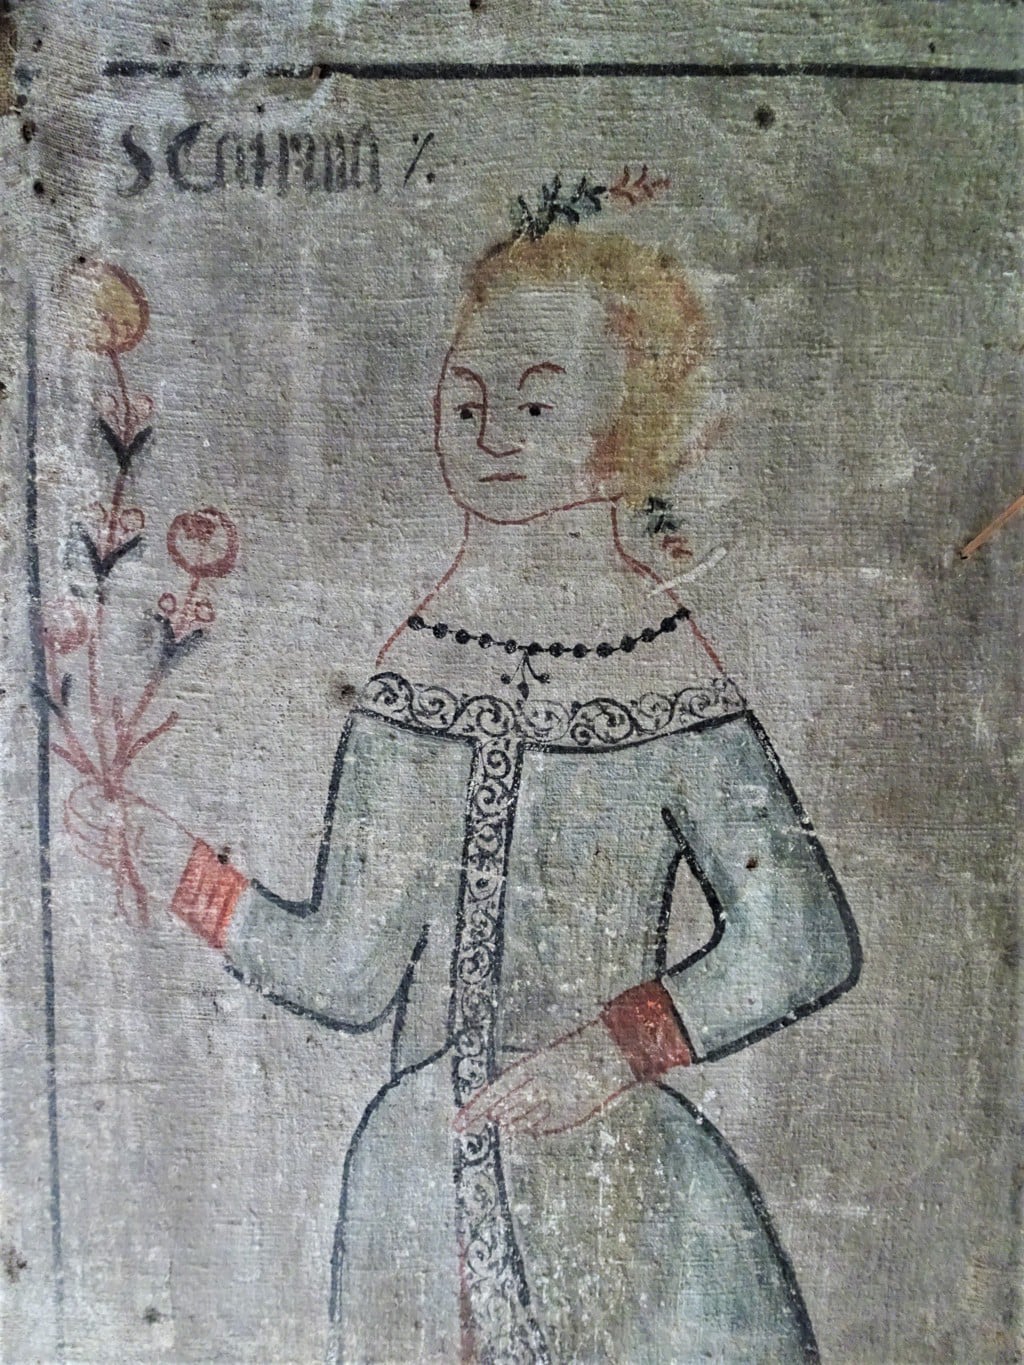 S Catrina ./.